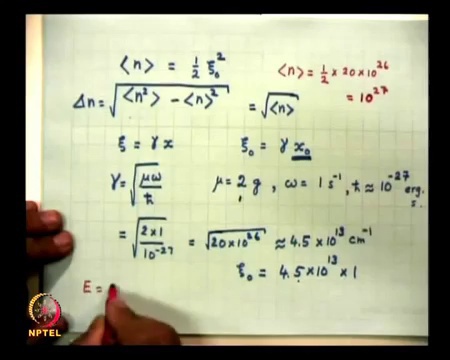 ⟨n⟩ = 1/2 ξ₀²
⟨n⟩ = 1/2 × 20 × 10²⁶
= 10²⁷
Δn = √(⟨n²⟩ − ⟨n⟩²) = √⟨n⟩
ξ = γx ξ₀ = γ x₀
γ = √(μω/ħ) μ = 2 g, ω = 1 s⁻¹, ħ ≈ 10⁻²⁷ erg. s.
= √(2×1/10⁻²⁷) = √(20×10²⁶) ≈ 4.5 × 10¹³ cm⁻¹
ξ₀ = 4.5 × 10¹³ × 1
E =
NPTEL